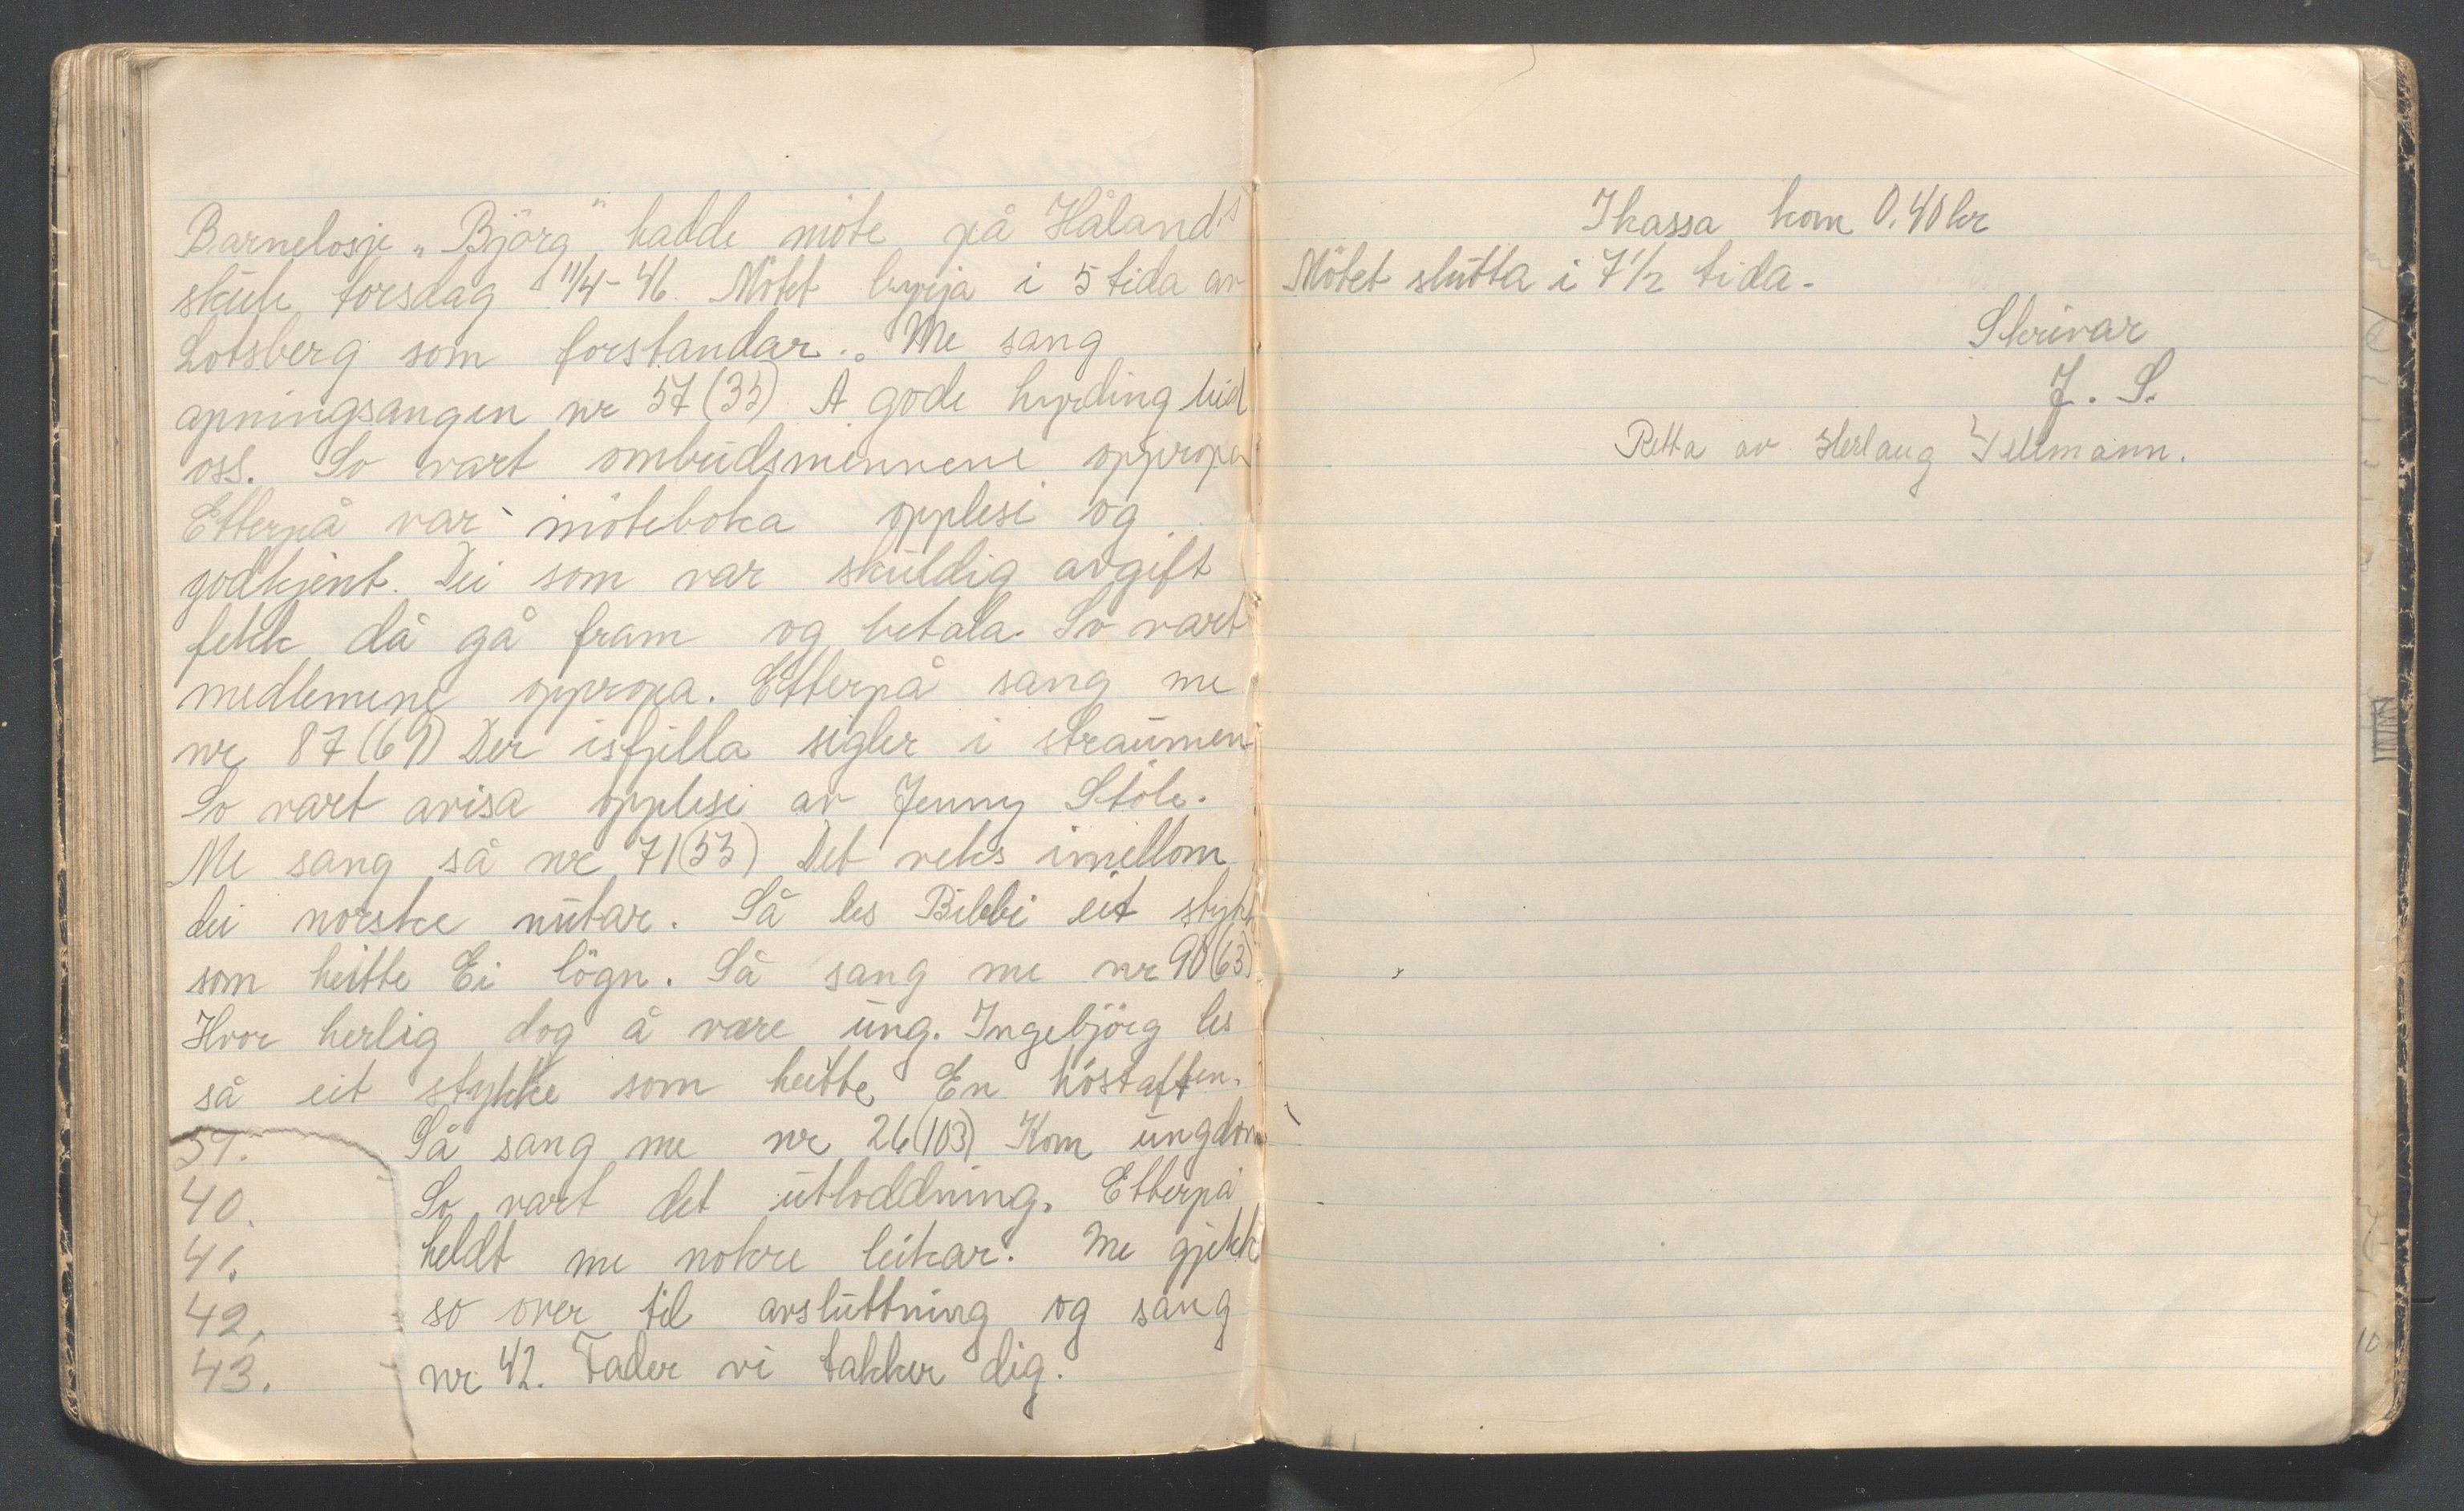 Barnelosje „Björg" hadde möte på Hålands
skule torsdag 11/4-46. Mötet byrja i 5 tida av
Lotsberg som forstandar. Me sang
apningsangen nr 57 (35) Å gode hyrding leid
oss. So vart ombudsmennene oppropa
Etterpå var möteboka opplesi og
godkjent. Dei som var skuldig avgift
fekk då gå fram og betala. So vart
medlemene oppropa. Etterpå sang me
nr 87 (69) Der isfjella sigler i straumen
So vart avisa opplesi av Jenny Stöle.
Me sang så nr 71 (53) Det veks imellom
dei norske nutar. Så les Bibbi eit stykke
som heitte Ei lögn. Så sang me nr 90 (63)
Hvor herlig dog å være ung. Ingebjörg les
så eit stykke som heitte En höstaften.
39. Så sang me nr 26 (103) Kom ungdom
40. So vart det utloddning. Etterpå
41. heldt me nokre leikar. Me gjekk
42, so over til avsluttning og sang
43. nr 42. Fader vi takker dig.
I kassa kom 0.40 kr
Mötet slutta i 7 1/2 tida.
Skrivar
J. S.
Retta av Herlaug